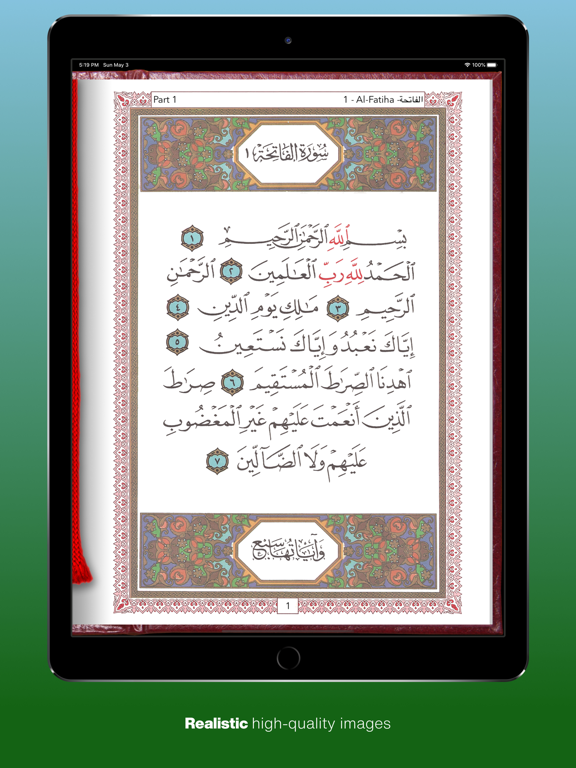 5:19 PM Sun May 3 100%
Part 1 1 - Al-Fatiha -الفاتحة
سُورَةُ الفَاتِحَةِ ١
بِسْمِ ٱللَّهِ ٱلرَّحْمَٰنِ ٱلرَّحِيمِ ١
ٱلْحَمْدُ لِلَّهِ رَبِّ ٱلْعَٰلَمِينَ ٢ ٱلرَّحْمَٰنِ
ٱلرَّحِيمِ ٣ مَٰلِكِ يَوْمِ ٱلدِّينِ ٤
إِيَّاكَ نَعْبُدُ وَإِيَّاكَ نَسْتَعِينُ ٥
ٱهْدِنَا ٱلصِّرَٰطَ ٱلْمُسْتَقِيمَ ٦ صِرَٰطَ
ٱلَّذِينَ أَنْعَمْتَ عَلَيْهِمْ غَيْرِ ٱلْمَغْضُوبِ
عَلَيْهِمْ وَلَا ٱلضَّآلِّينَ ٧
وَآيَاتُهَا سَبْعٌ
1
Realistic high-quality images